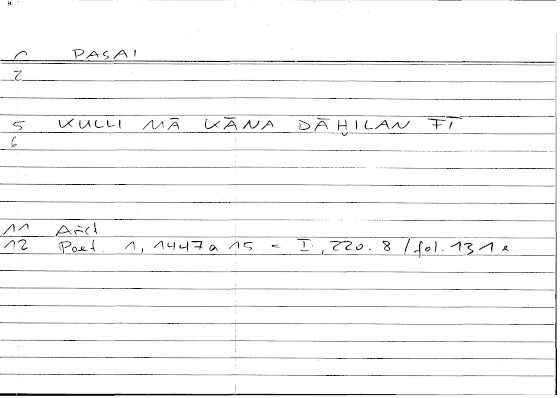 1 PASAI
2
5 KULLI MĀ KĀNA DĀḪILAN FĪ
6
11 Arist
12 Poet. 1, 1447a15 = I, 220.8 / fol. 131